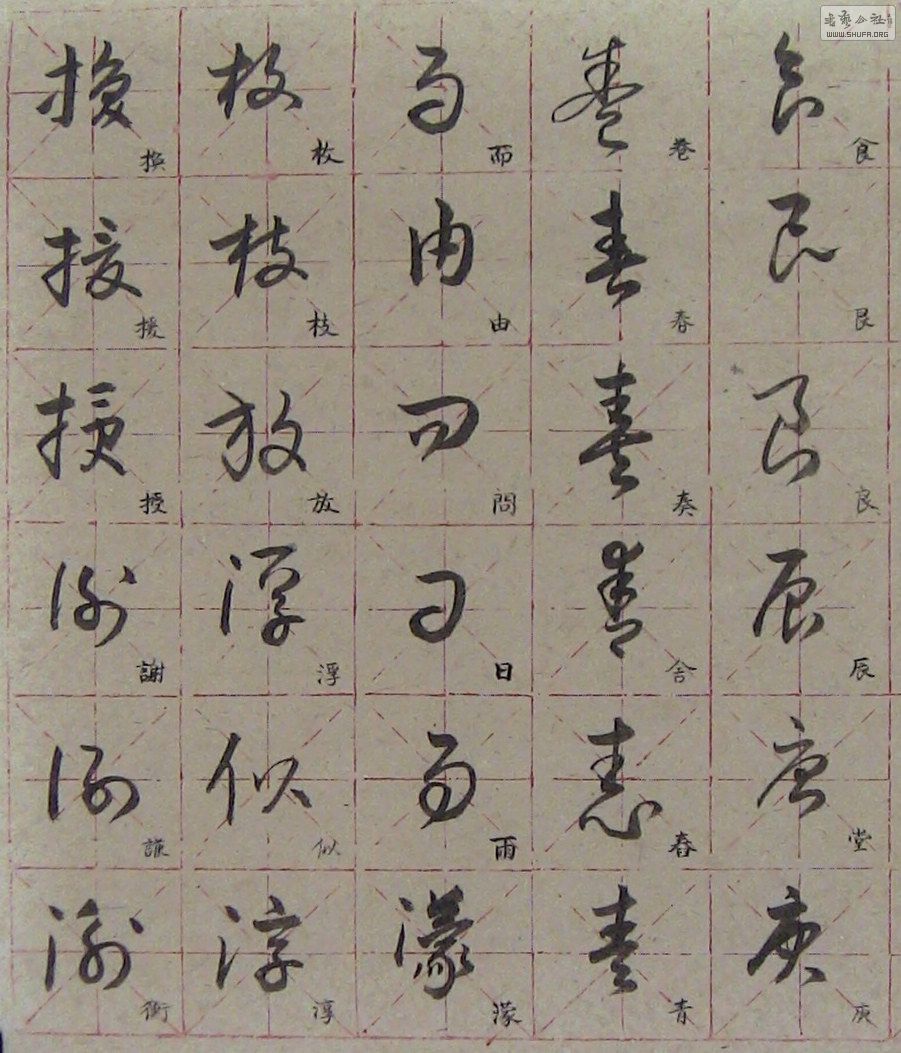 書藝公社
WWW.SHUFA.ORG
食艮良辰堂庚
卷春奏舍青
而由問日雨濛
枚枝放浮似淳
換援授謝謙衝